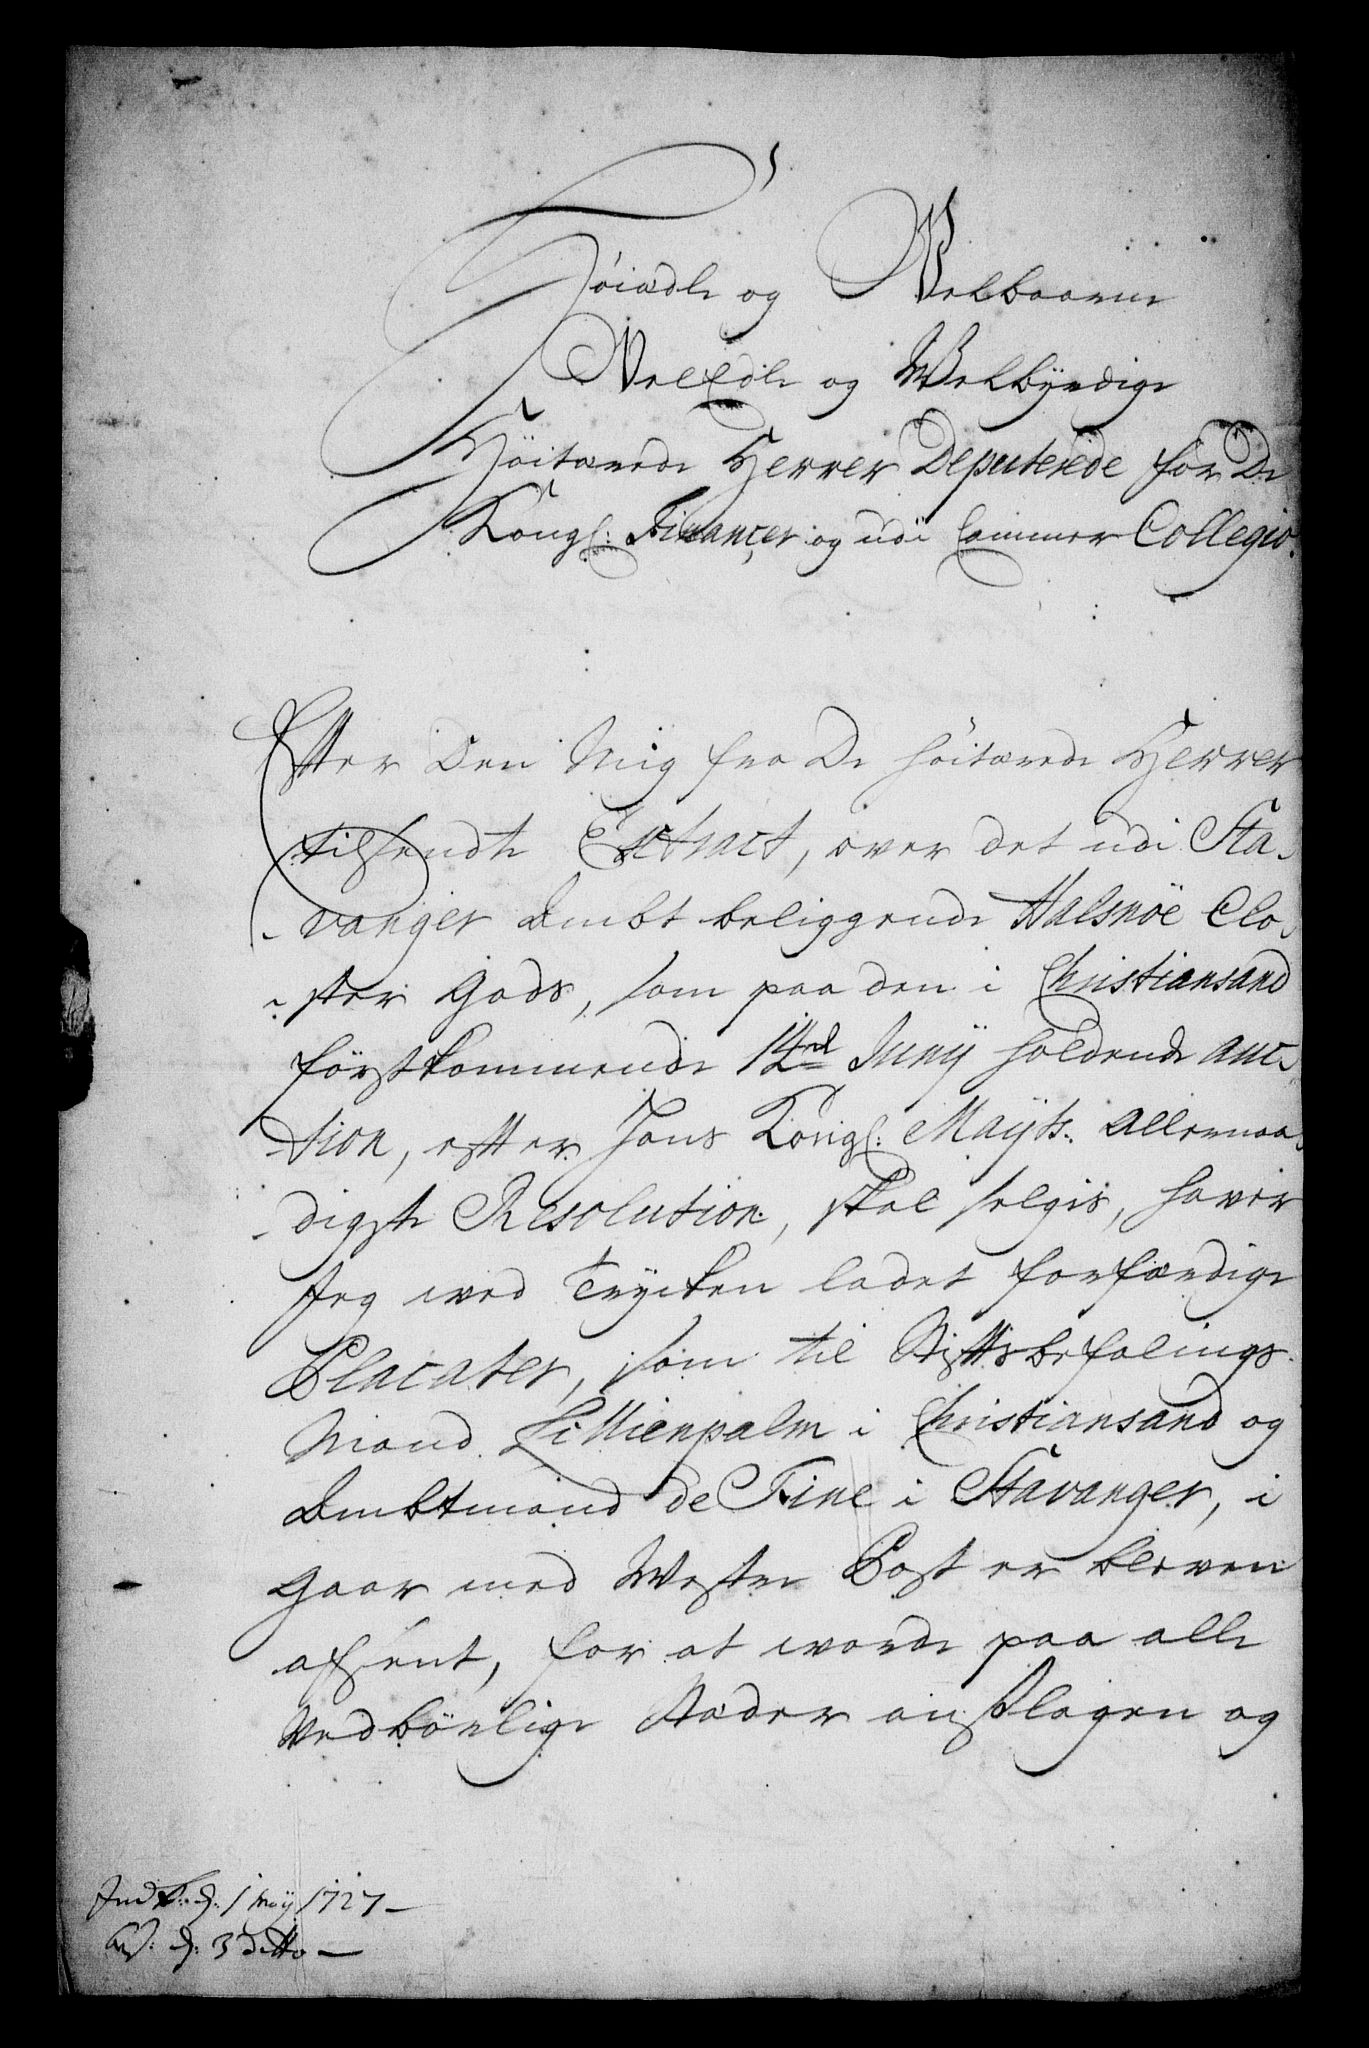 Høiædle og Velbaarne
VelEdle og Welbyrdige
Høitærede Herrer Deputerede for De
Kongl: Financer og udi Cammer Collegio.
Efter Den Mig fra De høitærede Herrer
tilsendte Extract, over det udi Sta-
-vanger Ambt beliggende Halsnöe Clo-
-ster Gods, som paa den i Christiansand
förstkommende 14de Junij holdende auc-
-tion, efter Hans Kongl: Mayts: Allernaa-
-digste Resolution, skal selgis, haver
Jeg wed Trycken ladet forfærdige
Placater, som til Stiftsbefalings-
Mand Lillienpalm i Christiansand og
Ambtmand de Fine i Stavanger, i
Gaar med Westre Post er bleven
afsent, for at worde paa alle
Vedbörlige Stæder anslagen og
Ind K: d: 1 Maij 1727 -
d: 3 ditto -